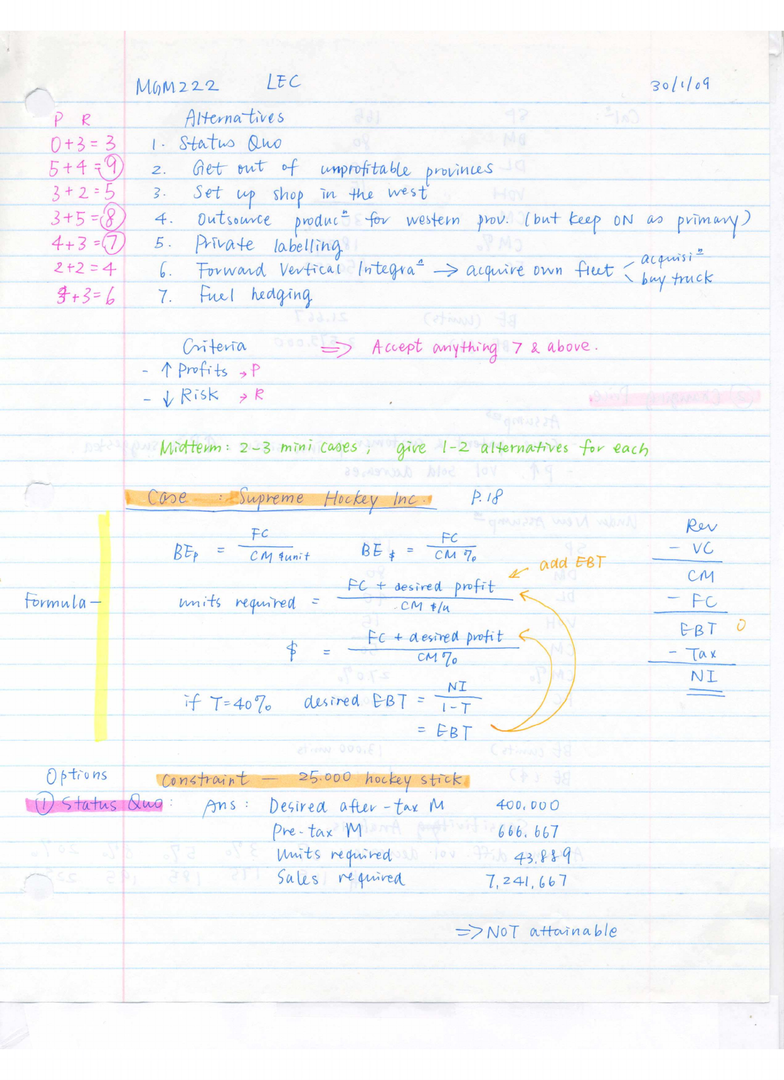 MGM222 LEC 30/1/09
P R Alternatives
0+3=3 1. Status Quo
5+4=9 2. Get out of unprofitable provinces
3+2=5 3. Set up shop in the west
3+5=8 4. Outsource produc≞ for western prov. (but keep ON as primary)
4+3=7 5. Private labelling
2+2=4 6. Forward Vertical Integra≞ → acquire own fleet < acquisi≞
buy truck
+3=6 7. Fuel hedging
Criteria ⇒ Accept anything 7 & above.
- ↑ Profits → P
- ↓ Risk → R
Midterm: 2-3 mini cases, give 1-2 alternatives for each
Case : Supreme Hockey Inc. P.18
Formula-
BEp = FC / CM $unit BE $ = FC / CM %
add EBT
units required = FC + desired profit / CM $/u
$ = FC + desired profit / CM %
if T=40% desired EBT = NI / 1-T
= EBT
Rev
- VC
CM
- FC
EBT 0
- Tax
NI
Options Constraint — 25.000 hockey stick
① Status Quo: Ans: Desired after-tax M 400,000
Pre-tax M 666,667
Units required 43,889
Sales required 7,241,667
⇒ NOT attainable